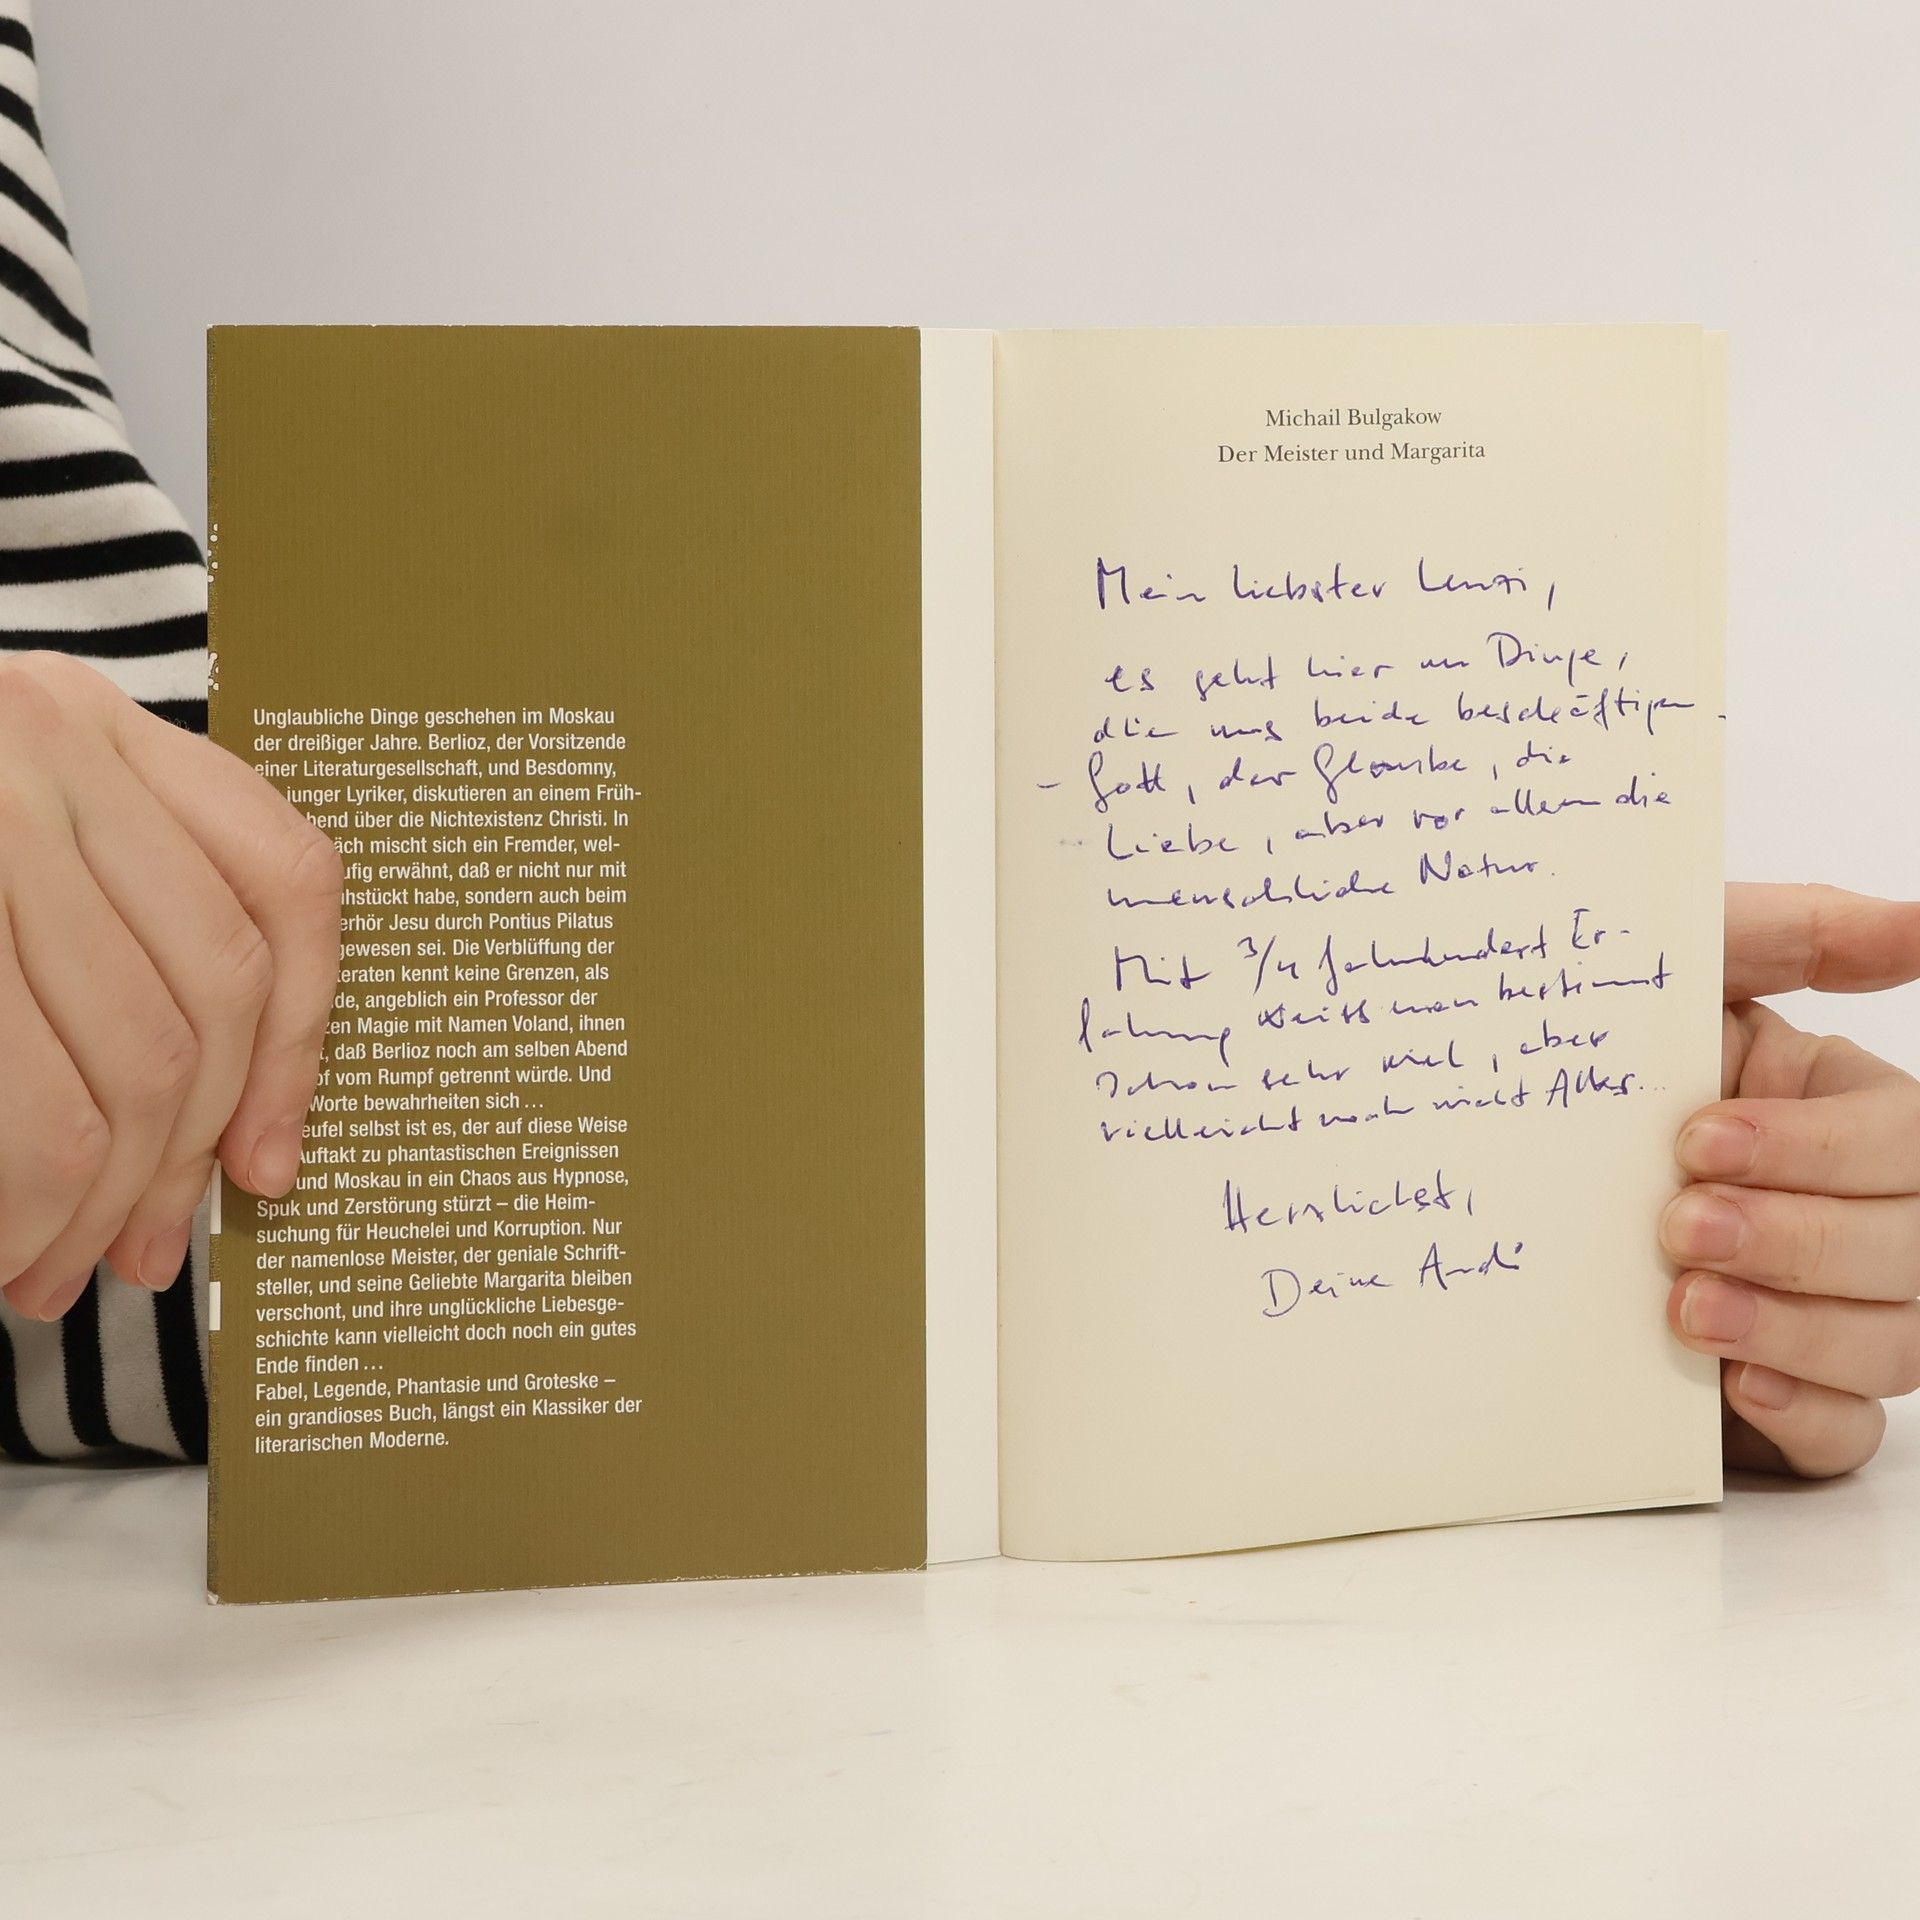 Unglaubliche Dinge geschehen im Moskau
der dreißiger Jahre. Berlioz, der Vorsitzende
einer Literaturgesellschaft, und Besdomny,
junger Lyriker, diskutieren an einem Früh-
bend über die Nichtexistenz Christi. In
äch mischt sich ein Fremder, wel-
ufig erwähnt, daß er nicht nur mit
hstückt habe, sondern auch beim
erhör Jesu durch Pontius Pilatus
gewesen sei. Die Verblüffung der
teraten kennt keine Grenzen, als
de, angeblich ein Professor der
zen Magie mit Namen Voland, ihnen
t, daß Berlioz noch am selben Abend
of vom Rumpf getrennt würde. Und
Worte bewahrheiten sich ...
eufel selbst ist es, der auf diese Weise
Auftakt zu phantastischen Ereignissen
und Moskau in ein Chaos aus Hypnose,
Spuk und Zerstörung stürzt – die Heim-
suchung für Heuchelei und Korruption. Nur
der namenlose Meister, der geniale Schrift-
steller, und seine Geliebte Margarita bleiben
verschont, und ihre unglückliche Liebesge-
schichte kann vielleicht doch noch ein gutes
Ende finden ...
Fabel, Legende, Phantasie und Groteske –
ein grandioses Buch, längst ein Klassiker der
literarischen Moderne.
Michail Bulgakow
Der Meister und Margarita
Mein liebster Lenzi,
es geht hier um Dinge,
die uns beide beschäftigen -
- Gott, der Glaube, die
Liebe, aber vor allem die
menschliche Natur.
Mit 3/4 Jahrhundert Er-
fahrung weiss man bestimmt
schon sehr viel, aber
vielleicht noch nicht Alles...
Herzlichst,
Deine Andi